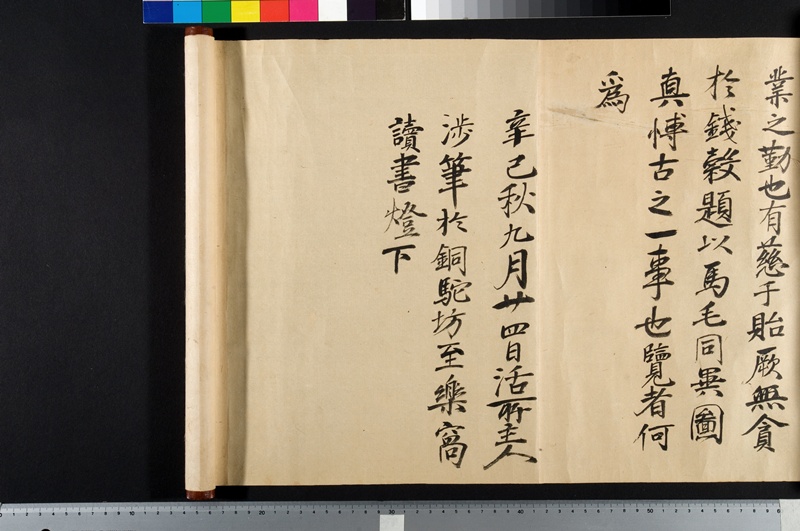 業之勤也有慈于貽厥無貪
於錢穀題以馬毛同異圖
真博古之一事也覽者何
爲
辛巳秋九月廿四日活所主人
渉筆於銅駝坊至樂窩
讀書燈下